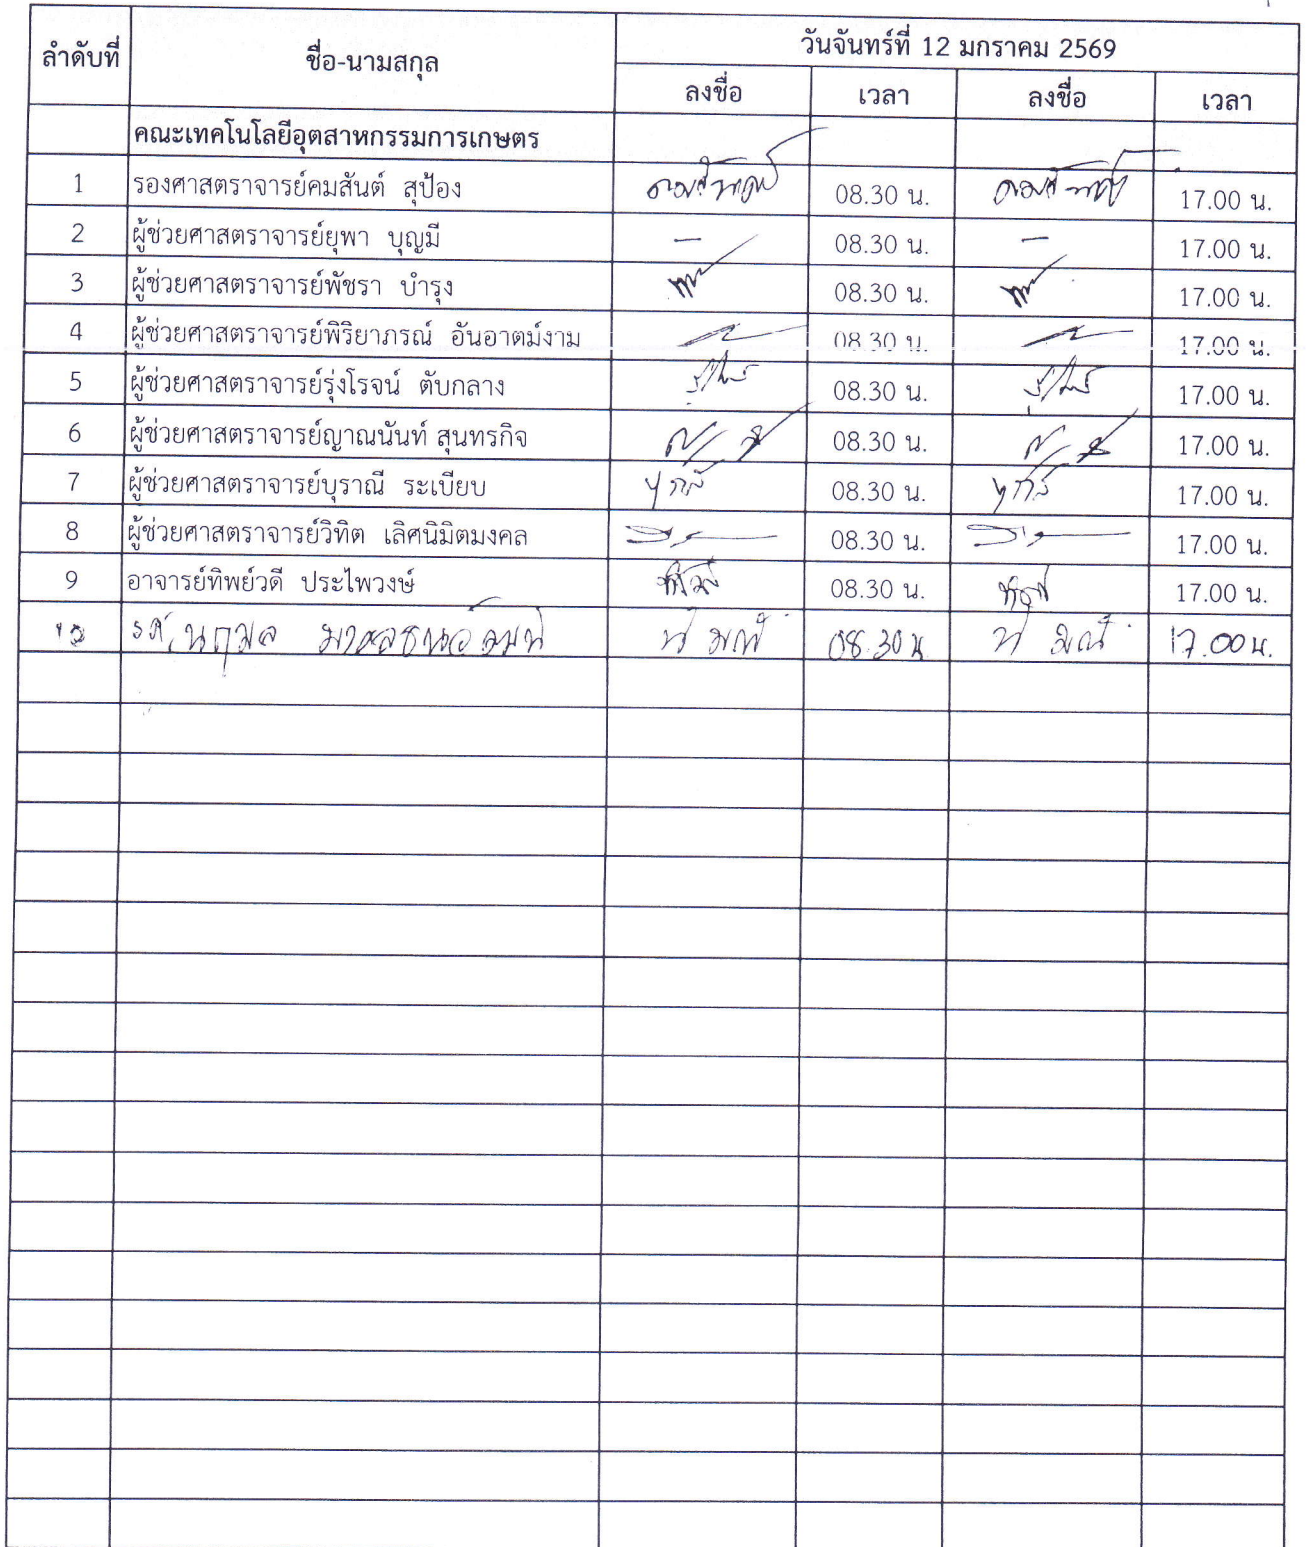 ลำดับที่ ชื่อ-นามสกุล วันจันทร์ที่ 12 มกราคม 2569
ลงชื่อ เวลา ลงชื่อ เวลา
คณะเทคโนโลยีอุตสาหกรรมการเกษตร
1 รองศาสตราจารย์คมสันต์ สุป้อง 08.30 น. 17.00 น.
2 ผู้ช่วยศาสตราจารย์ยุพา บุญมี - 08.30 น. - 17.00 น.
3 ผู้ช่วยศาสตราจารย์พัชรา บำรุง 08.30 น. 17.00 น.
4 ผู้ช่วยศาสตราจารย์พิริยาภรณ์ อันอาตม์งาม 08.30 น. 17.00 น.
5 ผู้ช่วยศาสตราจารย์รุ่งโรจน์ ตับกลาง 08.30 น. 17.00 น.
6 ผู้ช่วยศาสตราจารย์ญาณนันท์ สุนทรกิจ 08.30 น. 17.00 น.
7 ผู้ช่วยศาสตราจารย์บุราณี ระเบียบ 08.30 น. 17.00 น.
8 ผู้ช่วยศาสตราจารย์วิทิต เลิศนิมิตมงคล 08.30 น. 17.00 น.
9 อาจารย์ทิพย์วดี ประไพวงษ์ 08.30 น. 17.00 น.
10 รศ.นฤมล 08.30 น 17.00 น.